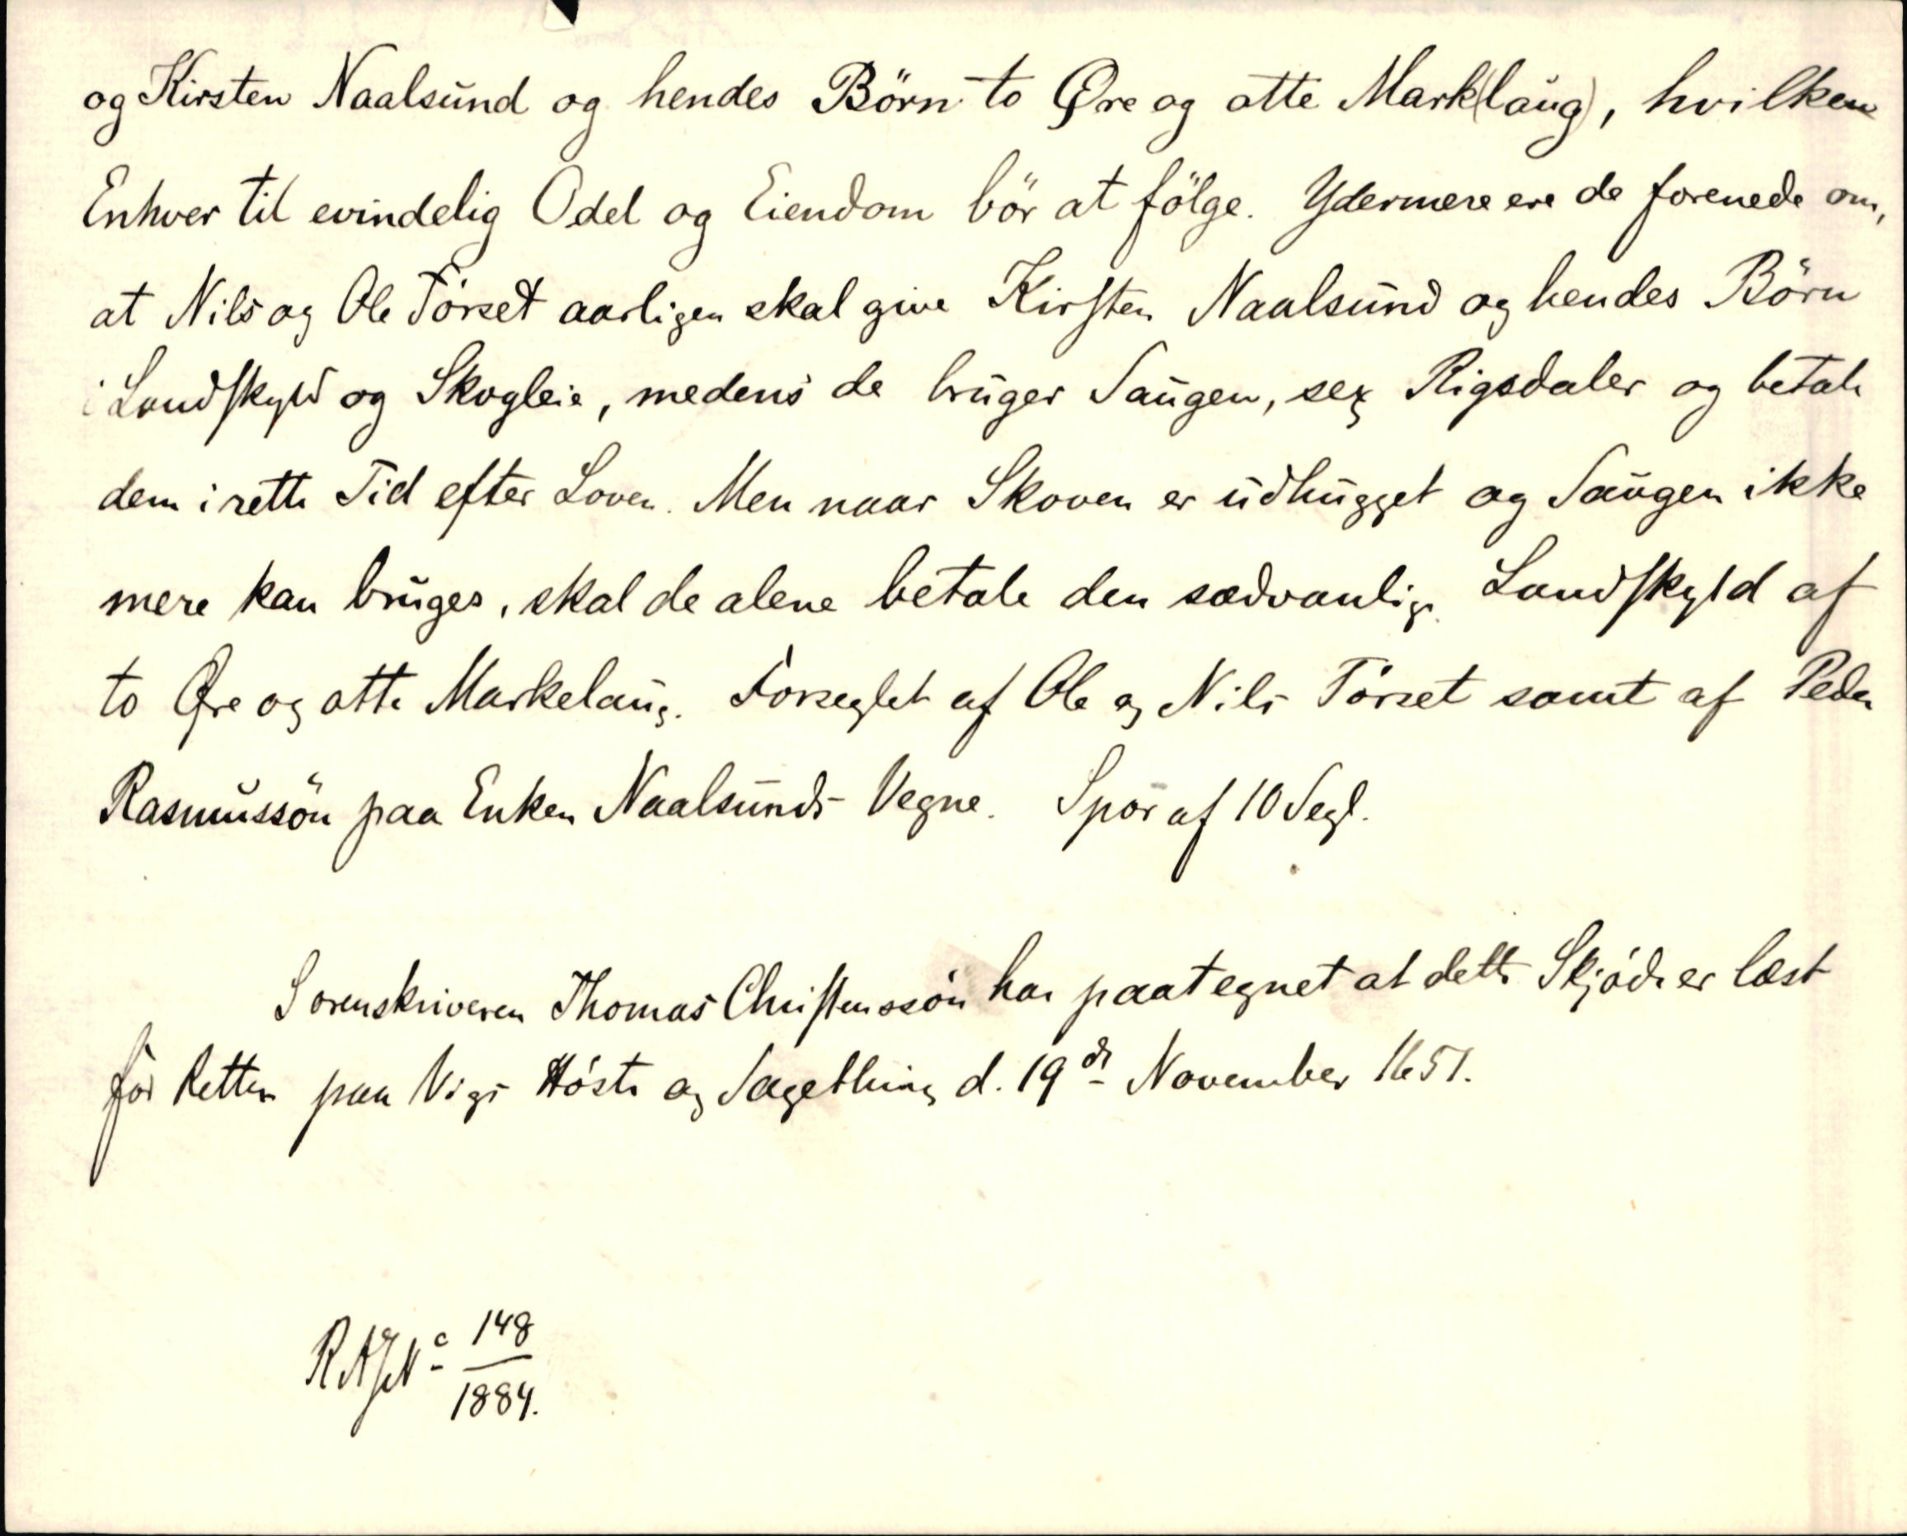 og Kirsten Naalsund og hendes Börn to Øre og otte Mark(laug), hvilken
Enhver til evindelig Odel og Eiendom bör at fölge. Ydermere ere de forenede om,
at Nils og Ole Törset aarligen skal give Kirsten Naalsund og hendes Börn
i Landskyld og Skogleie, medens de bruger Saugen, sex Rigsdaler og betale
dem i rette Tid efter Loven. Men naar Skoven er udhugget og Saugen ikke
mere kan bruges, skal de alene betale den sædvanlige Landskyld af
to Øre og otte Markelaug. Forseglet af Ole og Nils Törset samt af Peder
Rasmussön paa Enken Naalsunds Vegne. Spor af 10 Segl.
Sorenskriveren Thomas Christenssön har paategnet at dette Skjöde er læst
for Retten paa Vigs Höste og Sagething d. 19de November 1651.
R.A.J.No 148
1884.